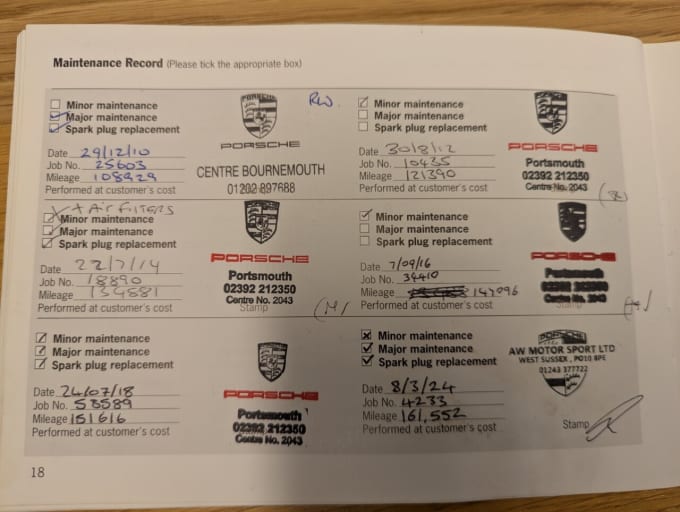 Maintenance Record (Please tick the appropriate box)
Minor maintenance
Major maintenance
Spark plug replacement
Date 29/12/10
Job No. 25603
Mileage 108929
Performed at customer's cost
PORSCHE
PORSCHE
CENTRE BOURNEMOUTH
01202 897688
RW.
Minor maintenance
Major maintenance
Spark plug replacement
Date 30/8/12
Job No. 10435
Mileage 121390
Performed at customer's cost
PORSCHE
Portsmouth
02392 212350
Centre No. 2043
+ Air Filters
Minor maintenance
Major maintenance
Spark plug replacement
Date 22/7/14
Job No. 18890
Mileage 134881
Performed at customer's cost
PORSCHE
Portsmouth
02392 212350
Centre No. 2043
Stamp
Minor maintenance
Major maintenance
Spark plug replacement
Date 7/09/16
Job No. 34410
Mileage 147096
Performed at customer's cost
PORSCHE
Portsmouth
02392 212350
Centre No. 2043
Stamp
Minor maintenance
Major maintenance
Spark plug replacement
Date 24/07/18
Job No. 53589
Mileage 151616
Performed at customer's cost
PORSCHE
Portsmouth
02392 212350
Centre No. 2043
Minor maintenance
Major maintenance
Spark plug replacement
Date 8/3/24
Job No. 4233
Mileage 161,552
Performed at customer's cost
PORSCHE
AW MOTOR SPORT LTD
WEST SUSSEX, PO10 8PE
01243 377722
Stamp
18